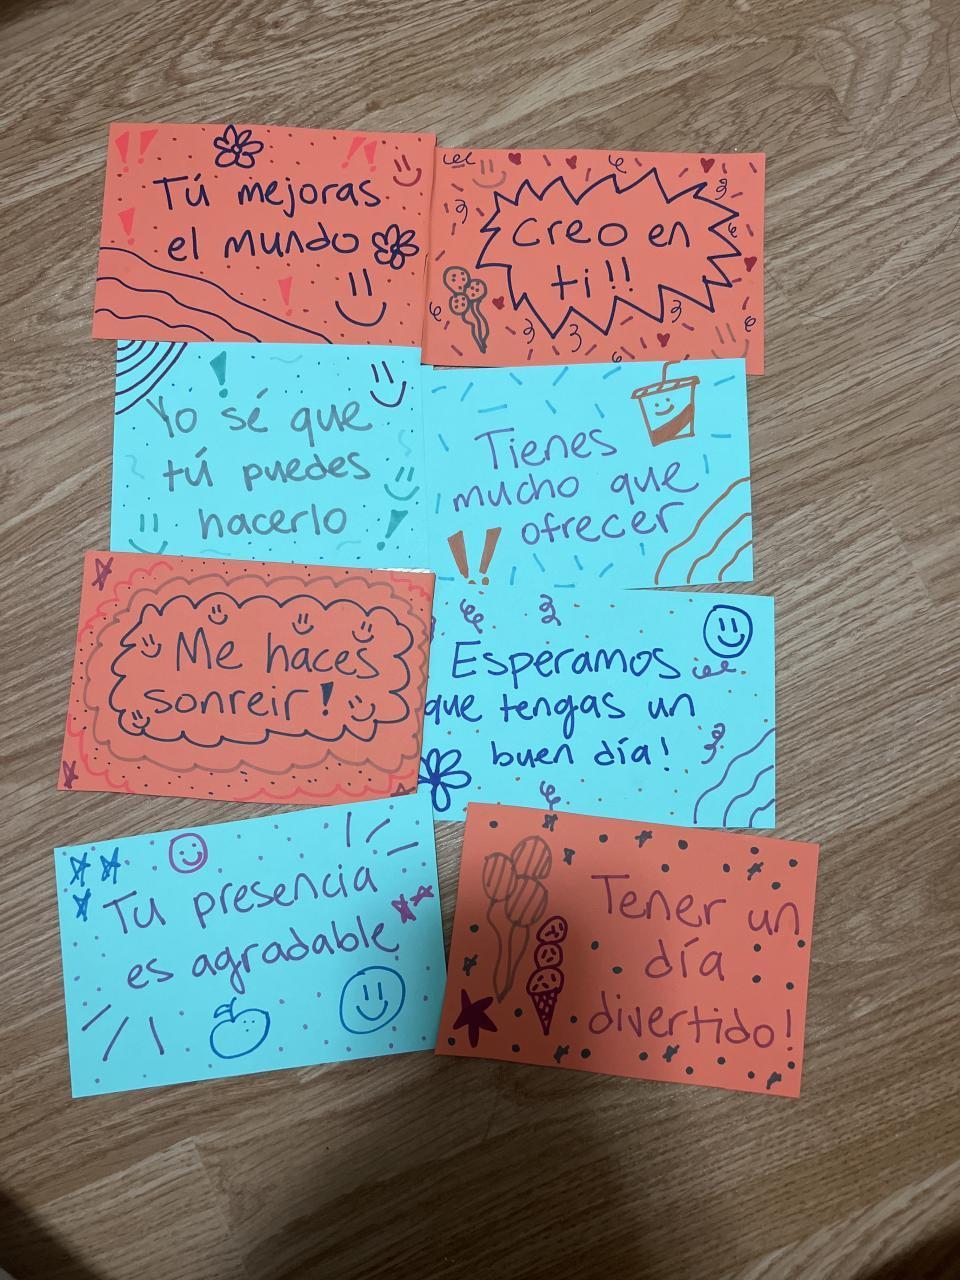 Tú mejoras
el mundo
Creo en
ti!!
Yo sé que
tú puedes
hacerlo
Tienes
mucho que
ofrecer
Me haces
sonreir!
Esperamos
que tengas un
buen día!
Tu presencia
es agradable
Tener un
día
divertido!